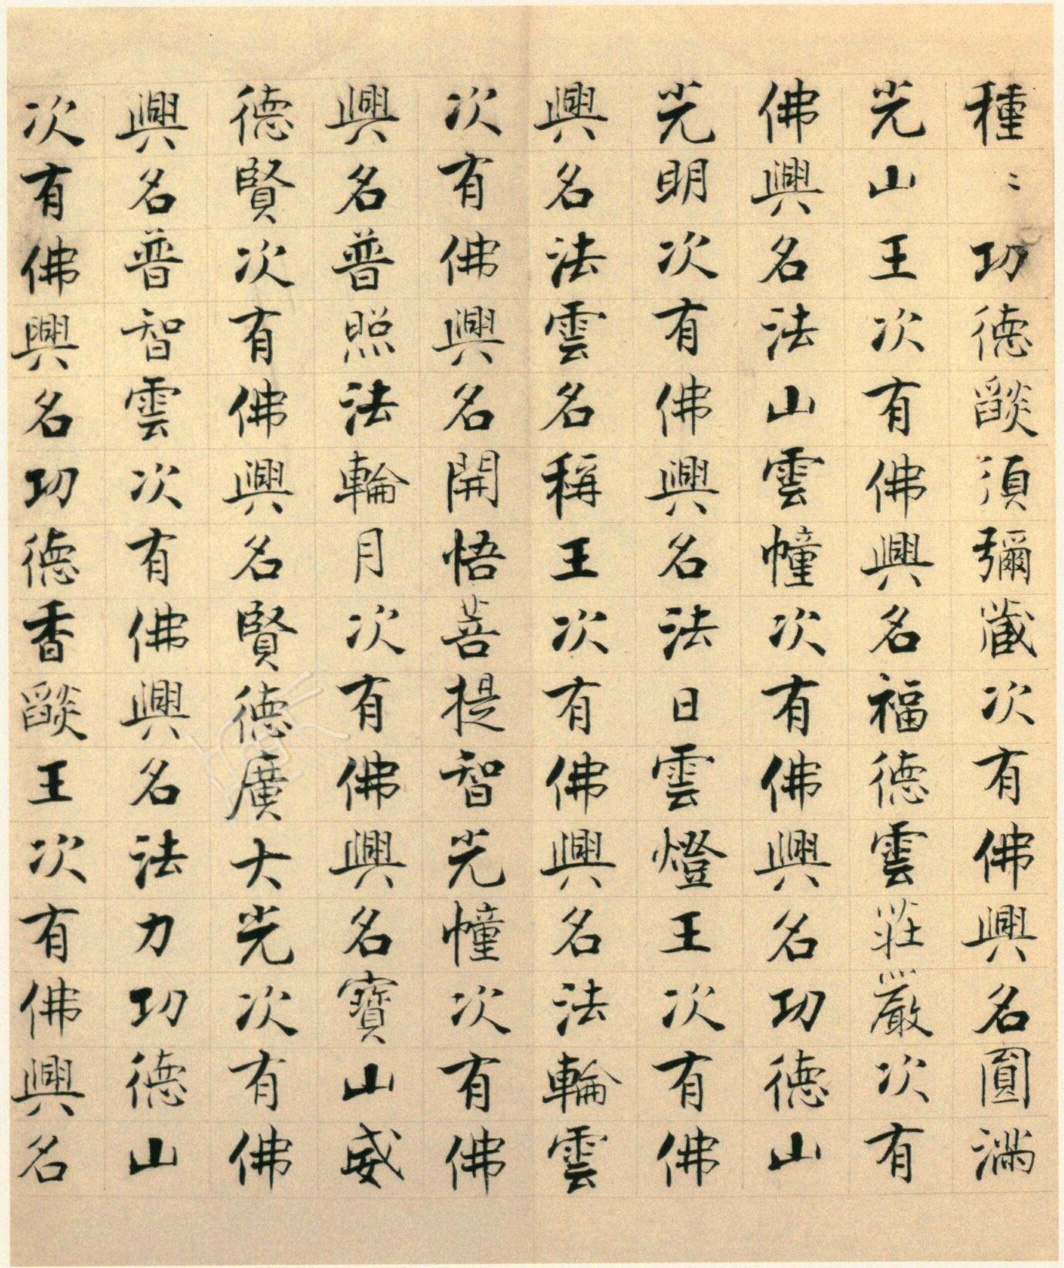 種〻功德燄須彌藏次有佛興名圓滿
光山王次有佛興名福德雲莊嚴次有
佛興名法山雲幢次有佛興名功德山
光明次有佛興名法日雲燈王次有佛
興名法雲名稱王次有佛興名法輪雲
次有佛興名開悟菩提智光幢次有佛
興名普照法輪月次有佛興名寶山威
德賢次有佛興名賢德廣大光次有佛
興名普智雲次有佛興名法力功德山
次有佛興名功德香燄王次有佛興名